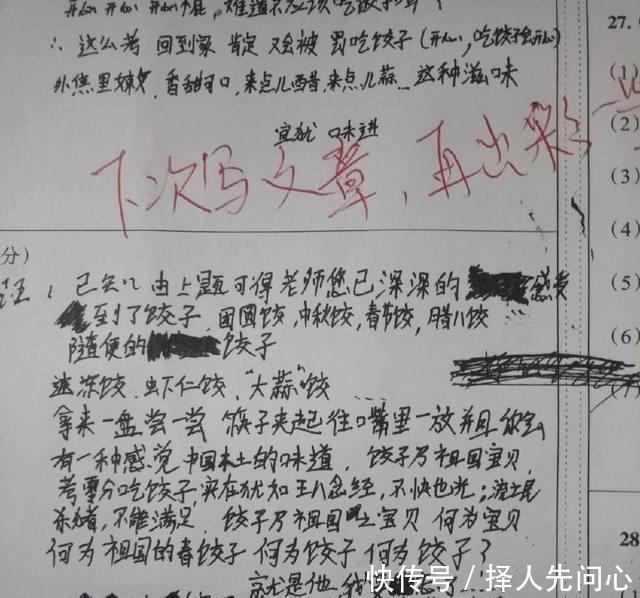 开心 开心 开心
∴ 这么考 回到家 肯定 又会被 罚吃饺子 (开心, 吃饺子会开心)
外焦里嫩, 香甜可口, 来点儿西醋, 来点儿蒜... 这种滋味
宜犹 味进
下次写文章, 再出彩一些
27.
(1)
(2)
(3)
(4)
(5)
(6)
28
分)
已知 由上题可得 老师您已深深的 感觉
至到了饺子. 团圆饺, 中秋饺, 春节饺, 腊八饺
随便的 饺子
速冻饺. 虾仁饺, "大蒜"饺
拿来一盘尝一尝 筷子夹起 往口嘴里一放并且你会
有一种感觉 中国本土的味道. 饺子乃祖国宝贝.
考零分吃饺子, 实在犹如王八念经, 不快也光; 流土昆
杀猪, 不能满足. 饺子乃祖国 宝贝 何为宝贝
何为祖国的春饺子 何为饺子 何为饺子?
就是他, 我
快传号 / 择人先问心